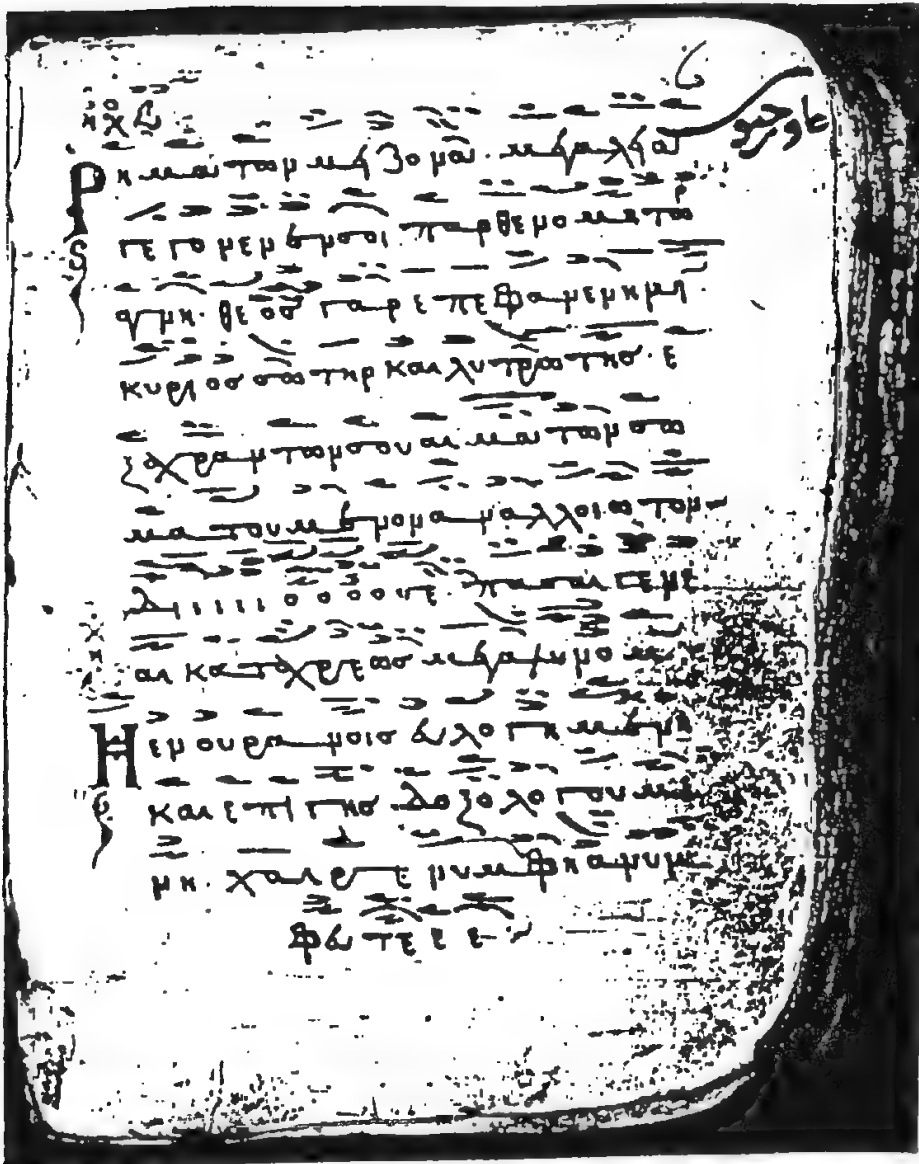 ηχ
Ρηματων μειζονα· μεγαλεια
γεγονεν εν σοι παρθενομητωρ
αγνη· θεοσ γαρ επεφανεν ημιν·
κυριοσ σωτηρ και λυτρωτησ· ε
ξ αχραντων σου αιματων σω
ματουμενον αναλλοιωτον
διιιιι ο ο ο ο ο πασαι γενε
αι κατοχρεωσ μεγαλυνομε
Η εν ουρανοισ ευλογημενη
και επι γησ δοξολογουμε
νη· χαιρε νυμφη ανυμ
φευτε ε ε